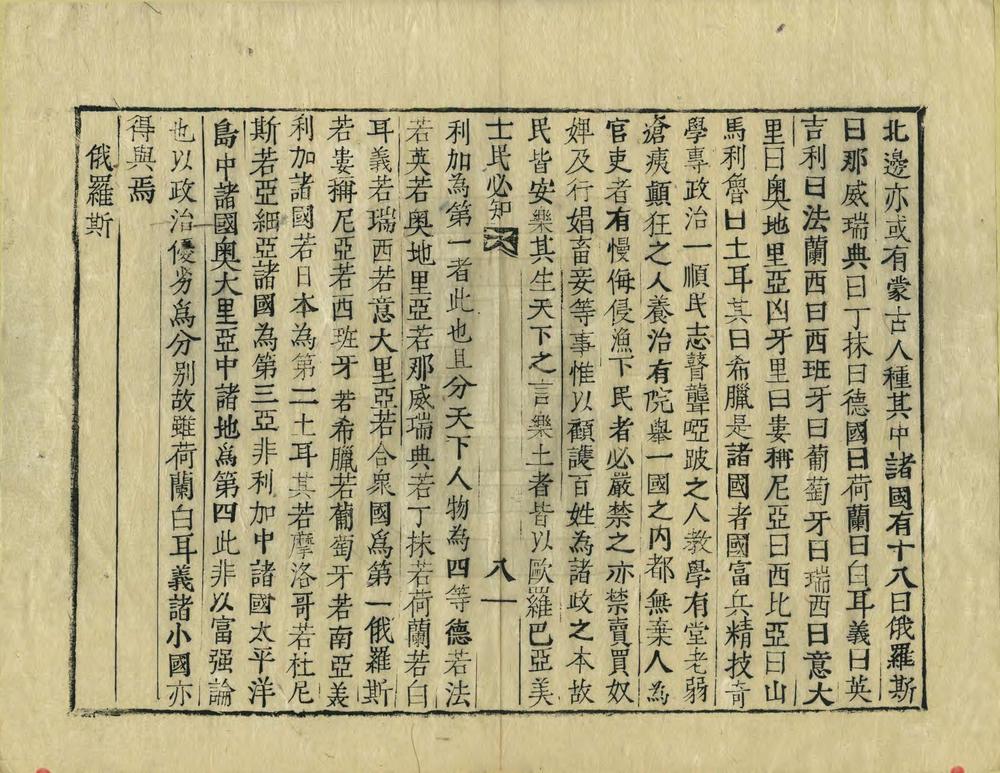 北邊亦或有蒙古人種其中諸國有十八曰俄羅斯
曰那威瑞典曰丁抹曰德國曰荷蘭曰白耳義曰英
吉利曰法蘭西曰西班牙曰葡萄牙曰瑞西曰意大
里曰奧地里亞匈牙里曰婁稱尼亞曰西比亞曰山
馬利魯曰土耳其曰希臘是諸國者國富兵精技奇
學專政治一順民志瞽聾啞跛之人教學有堂老弱
滄痍顛狂之人養治有院舉一國之內都無棄人為
官吏者有慢侮侵漁下民者必嚴禁之亦禁賣買奴
婢及行娼畜妾等事惟以顧護百姓為諸政之本故
民皆安樂其生天下之言樂土者皆以歐羅巴亞美
士民必知
八
利加為第一者此也且分天下人物為四等德若法
若英若奧地里亞若那威瑞典若丁抹若荷蘭若白
耳義若瑞西若意大里亞若合衆國爲第一俄羅斯
若婁稱尼亞若西班牙若希臘若葡萄牙若南亞美
利加諸國若日本為第二土耳其若摩洛哥若杜尼
斯若亞細亞諸國為第三亞非利加中諸國太平洋
島中諸國奧大里亞中諸地爲第四此非以富强論
也以政治優劣爲分別故雖荷蘭白耳義諸小國亦
得與焉
俄羅斯